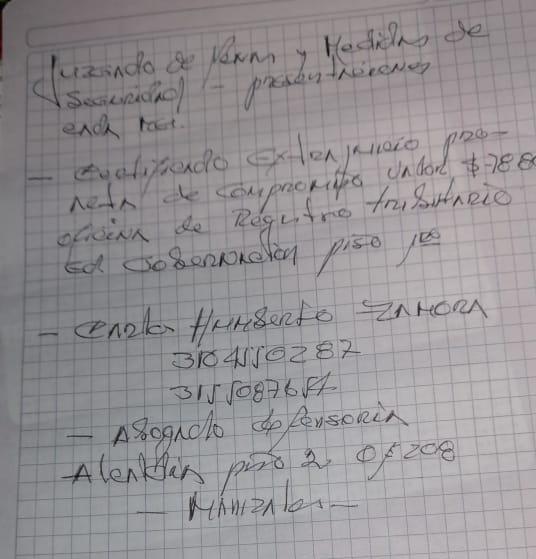 Juzgado de Penas y Medidas de
Seguridad - presentaciones
cada mes.
- Certificado Extrajuicio pro-
neta de compromiso valor $788
oficina de Registro tributario
Ed Gobernación piso 1ro
- Carlos Humberto ZAMORA
310
315
- Abogado defensoria
Alcaldia piso 2 Of 208
- Manizales -